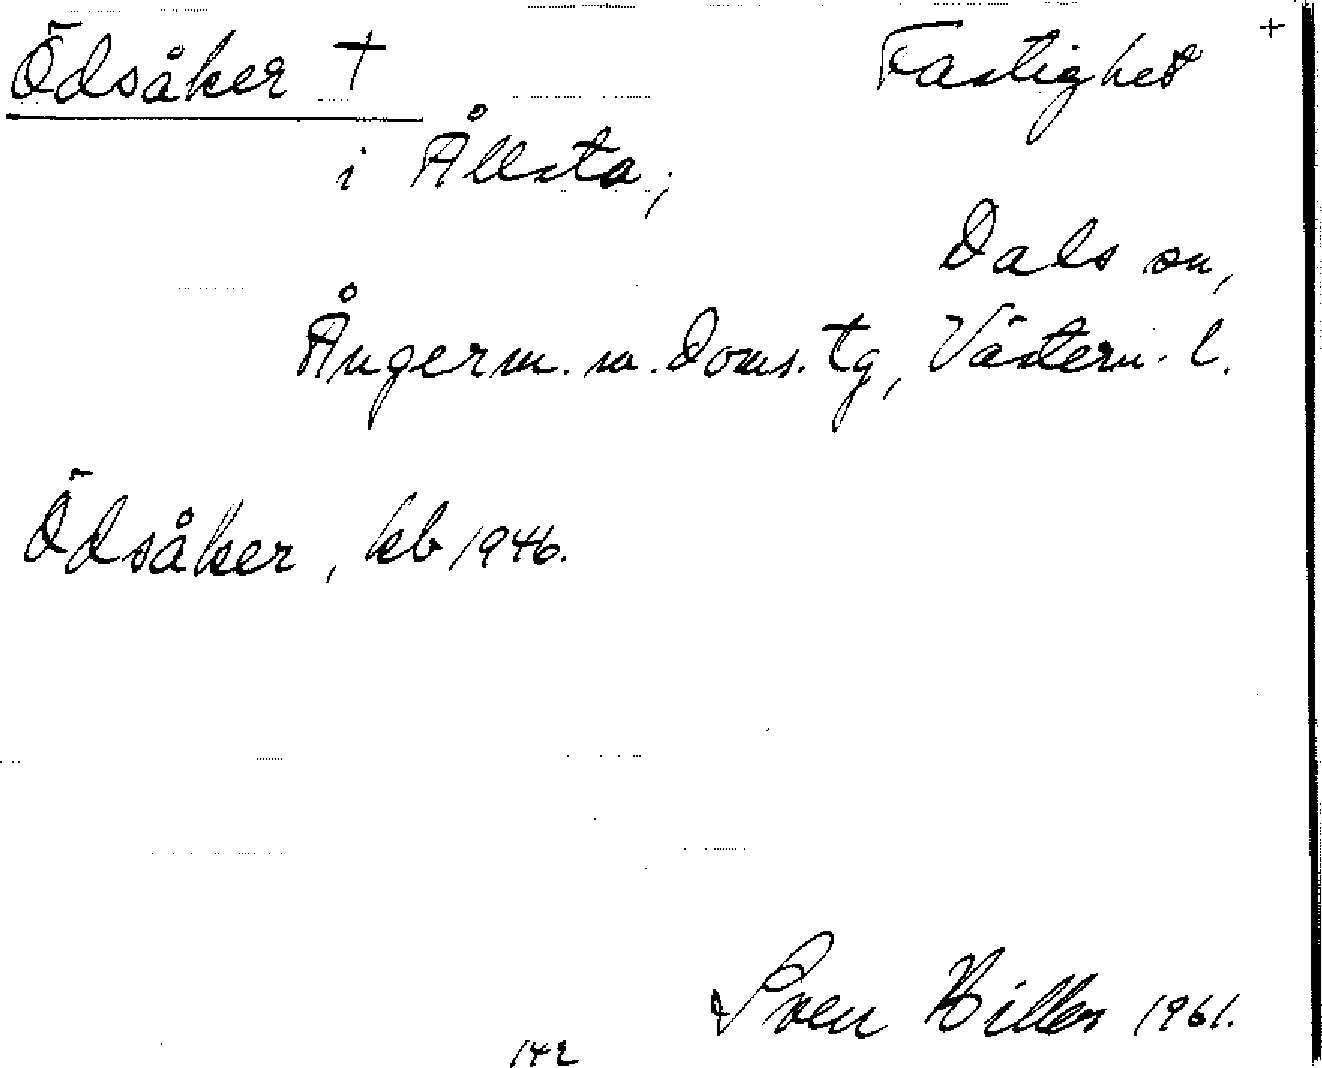 Ödsåker † Fastighet +
i Ållsta,
Dals sn,
Ångerm. m. doms. tg, Västern. l.
Ödsåker, kb 1946.
Sven Hillbo 1961.
142